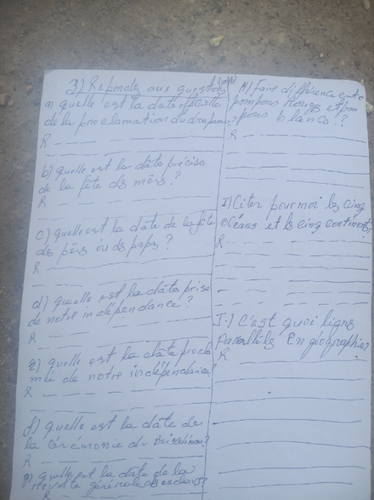 2) Répondez aux questions
a) quelle est la date officielle
de la proclamation du drapeau
R
b) quelle est la date précise
de la fête des mères?
R
c) quelle est la date de la fête
des pères ou des papas?
R
d) quelle est la date prise
de notre indépendance?
R
e) quelle est la date procla
mée de notre indépendance?
R
f) quelle est la date de
la cérémonie du
R
g) quelle est la date de la
révolte générale des esclaves?
H) Faire différence entre
pompons rouges et pom
pons blancs??
R
I) Citer pour moi les cinq
océans et les cinq continents
J-) C'est quoi ligne
Parallèle en géographie?
R